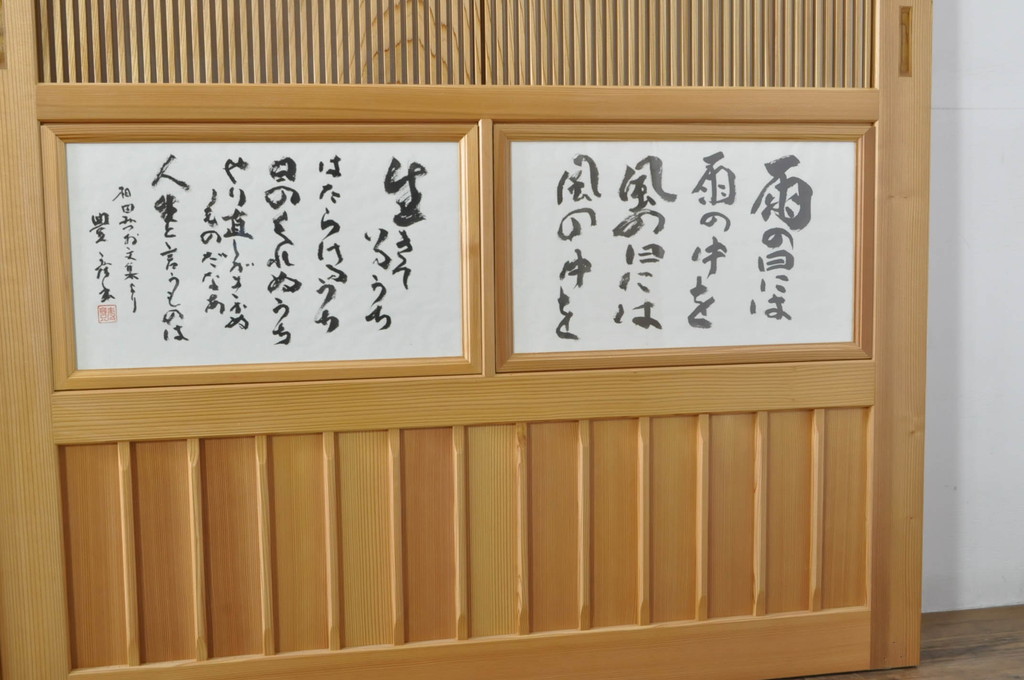 雨の日には
雨の中を
風の日には
風の中を
生きているうち
はたらけるうち
日のくれぬうち
やり直しがきかぬ
ものだなあ
人生と言うものは
相田みつお文集より
豊彦書